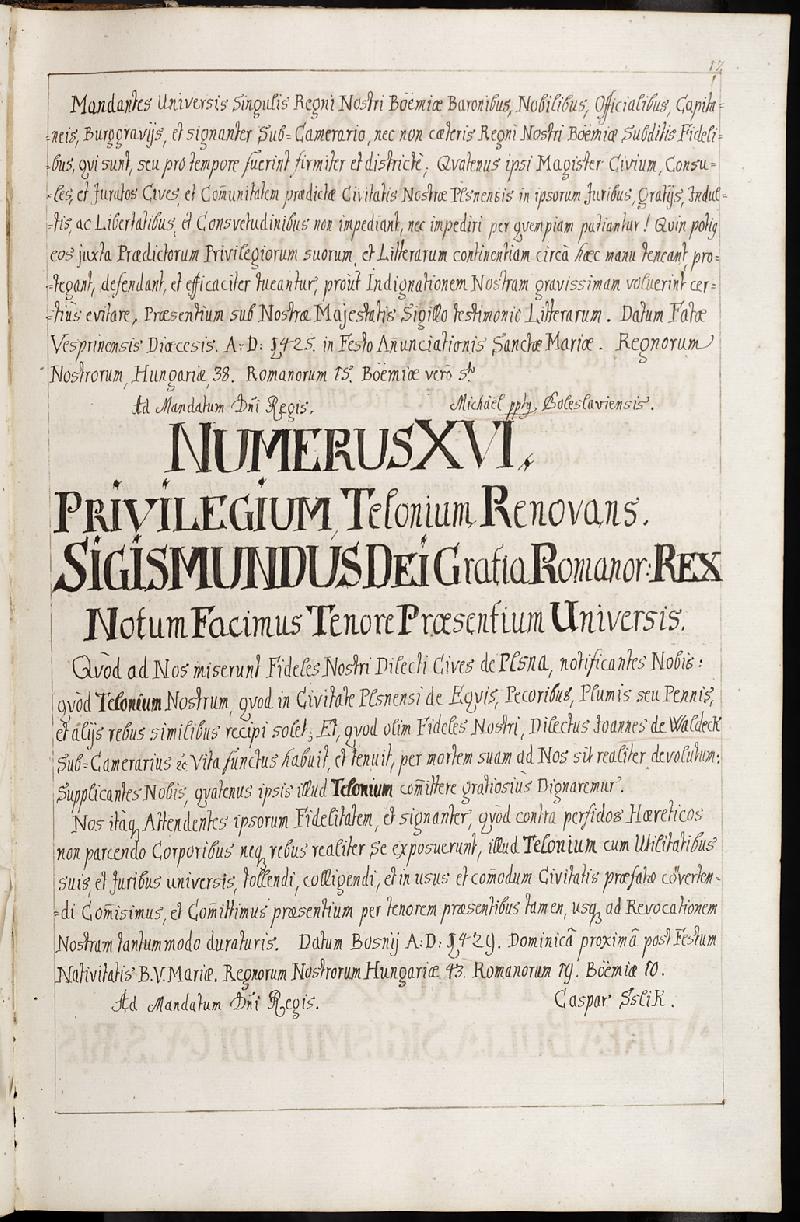 Mandantes Universis Singulis Regni Nostri Boëmiæ Baronibus, Nobilibus, Officialibus, Capita=
=neis, Burggravijs, et signanter Sub=Camerario, nec non cæteris Regni Nostri Boëmiæ Subditis Fideli=
=bus, qvi sunt, seu pro tempore fuerint firmiter et districtè, Qvatenus ipsi Magister Civium, Consu=
=les, et Juratos Cives, et Com̄unitatem prædictæ Civitatis Nostræ Plsnensis in ipsorum Juribus, Gratijs, Indul=
=tis, ac Libertatibus, et Consvetudinibus non impediant, nec impediri per qvempiam patiantur! Quin potiq
eos juxta Prædictorum Privilegiorum suorum, et Litterarum continentiam circà hæc manu teneant, pro=
=tegant, defendant, et efficaciter tueantur, proùt Indignationem Nostram gravissimam voluerint cer=
=tiùs evitare, Præsentium sub Nostræ Majestatis Sigillo testimonio Litterarum. Datum Fatæ
Vesprinensis Diœcesis. A: D: 1425. in Festo Anunciationis Sanctæ Mariæ. Regnorum
Nostrorum, Hungariæ, 38. Romanorum 15. Boëmiæ verò 5tò
Ad Mandatum Dn̄i Regis. Michaël ppty. Boleslaviensis.
NUMERUS XVI.
PRIVILEGIUM Telonium Renovans.
SIGISMUNDUS DEI Gratia Romanor: REX
Notum Facimus Tenore Præsentium Universis.
Qvòd ad Nos miserunt Fideles Nostri Dilecti Cives de Plsna, notificantes Nobis:
qvòd Telonium Nostrum, qvod in Civitate Plsnensi de Eqvis, Pecoribus, Plumis seu Pennis,
et alijs rebus similibus recipi solet; Et, qvod olim Fideles Nostri, Dilectus Joannes de Waldeck
Sub=Camerarius &c Vita functus habuit, et tenuit, per mortem suam ad Nos sit realiter devolutum:
Supplicantes Nobis, qvatenus ipsis illud Telonium com̄ittere gratiosiùs Dignaremur.
Nos itaq, Attendentes ipsorum Fidelitatem, et signanter, qvòd contra perfidos Hæreticos
non parcendo Corporibus neq, rebus realiter se exposuerunt, illud Telonium cum Utilitatibus
suis, et Juribus universis, tollendi, colligendi, et in usus et com̄odum Civitatis præfatæ cōverten=
=di Com̄isimus, et Com̄ittimus præsentium per tenorem præsentibus tamen, usq, ad Revocationem
Nostram tantummodo duraturis. Datum Bosnij A: D: 1429. Dominicâ proximâ post Festum
Nativitatis B. V. Mariæ. Regnorum Nostrorum Hungariæ 43. Romanorum 19. Boëmiæ 10.
Ad Mandatum Dn̄i Regis. Caspar Sslik.